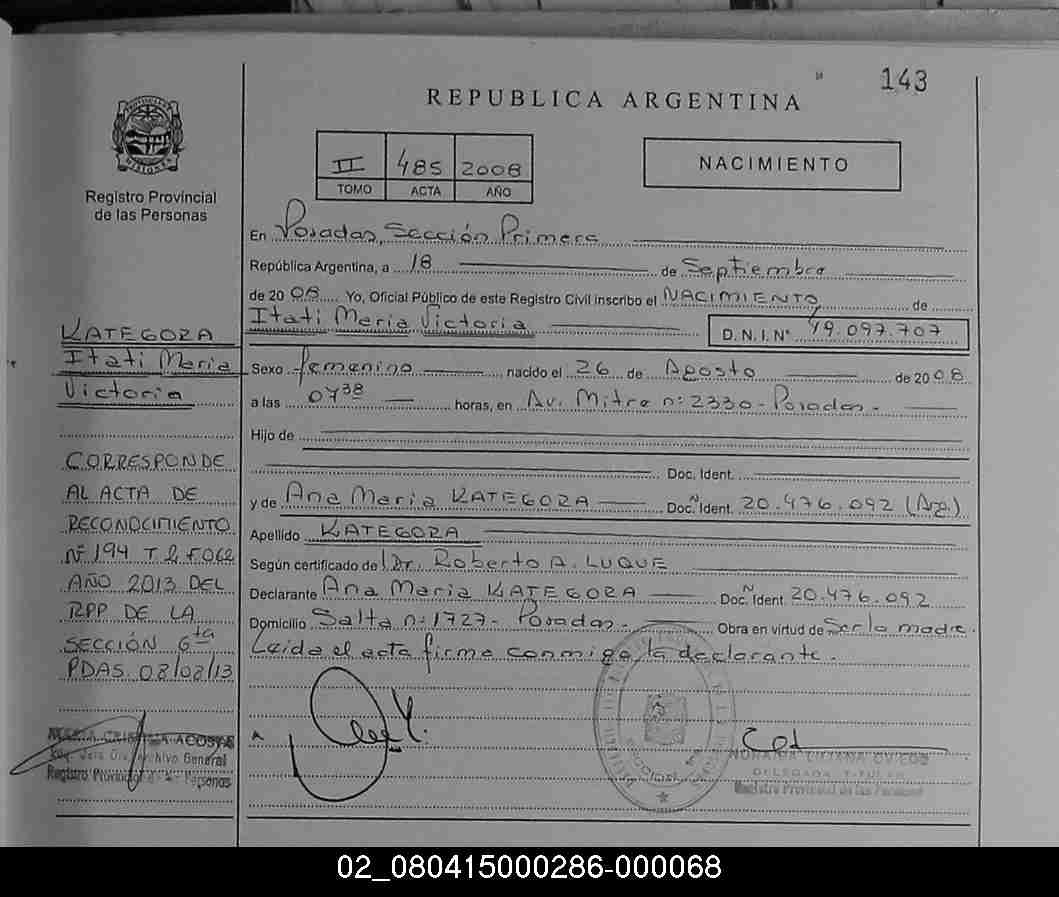 143
REPUBLICA ARGENTINA
II 485 2008
TOMO ACTA AÑO
NACIMIENTO
Registro Provincial
de las Personas
En Posadas, Sección Primera
República Argentina, a 18 de Septiembre
de 2008 Yo, Oficial Público de este Registro Civil inscribo el NACIMIENTO de
Itati Maria Victoria D.N.I. Nº 49.097.707
Sexo femenino nacido el 26 de Agosto de 2008
a las 07 38 horas, en Av. Mitre nº 2330 - Posadas.
Hijo de
Doc. Ident.
y de Ana Maria KATEGORA Doc. Ident. Nº 20.476.092 (Arg.)
Apellido KATEGORA
Según certificado de Dr. Roberto A. LUQUE
Declarante Ana Maria KATEGORA Doc. Ident. Nº 20.476.092
Domicilio Salta nº 1727 - Posadas. Obra en virtud de Ser la madre.
Leida el acta firma conmigo la declarante.
KATEGORA
Itati Maria
Victoria
CORRESPONDE
AL ACTA DE
RECONOCIMIENTO
Nº 194 T. F. 062
AÑO 2013 DEL
RPP DE LA
SECCIÓN 6ta
PDAS. 08/08/13
MARIA CRISTINA ACOSTA
Archivo General
Registro Provincial de las Personas
DELEGADA TITULAR
Registro Provincial de las Personas
02_080415000286-000068